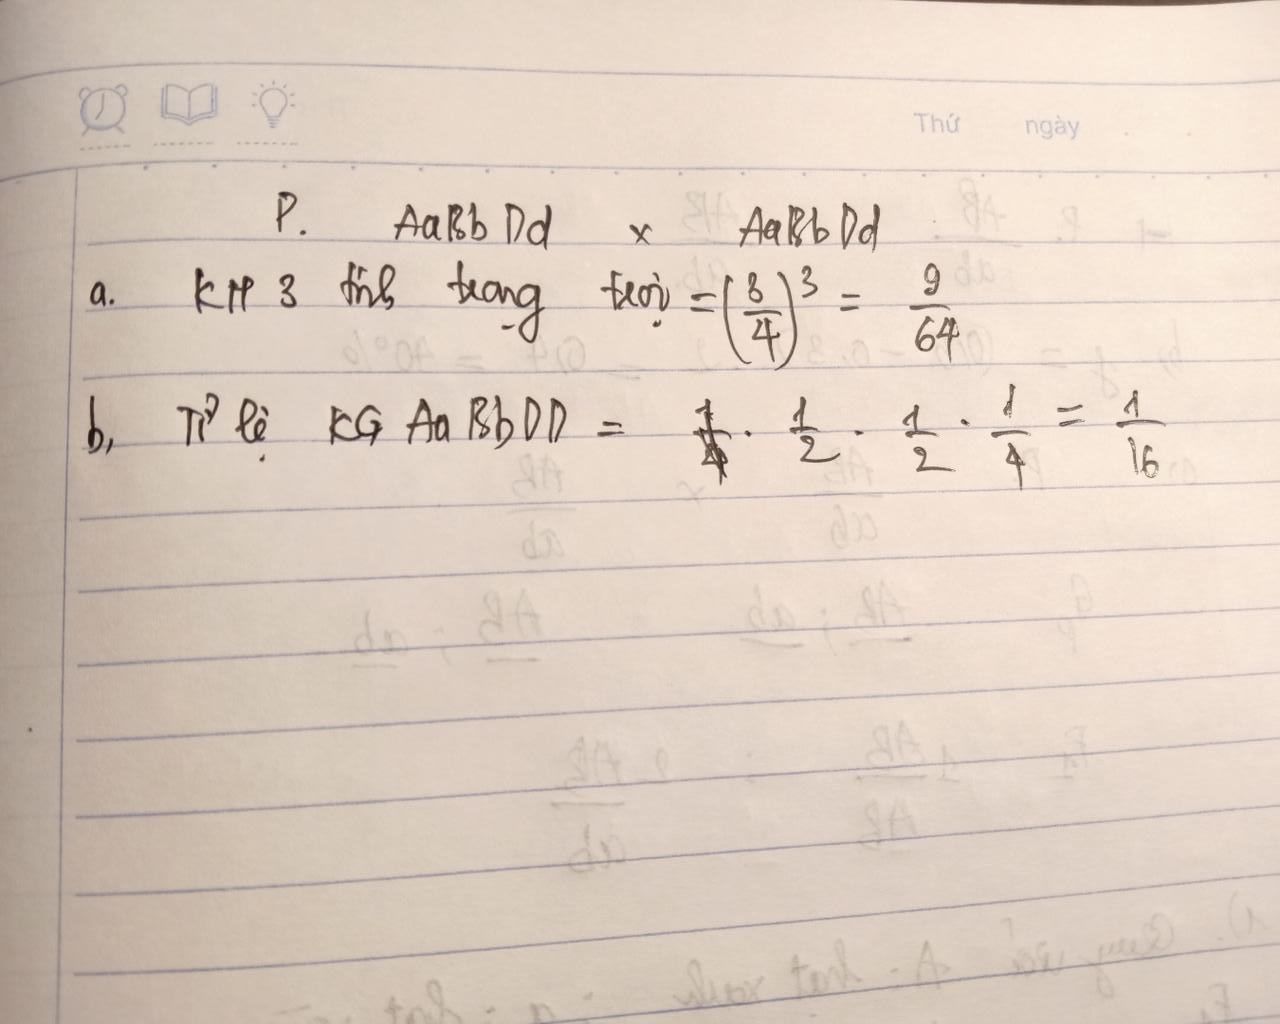 Thứ ngày
P. AaBbDd x AaBbDd
a. KH 3 tính trạng trội = (3/4)³ = 9/64
b, Tỉ lệ KG AaBbDD = . 1/2 . 1/2 . 1/4 = 1/16